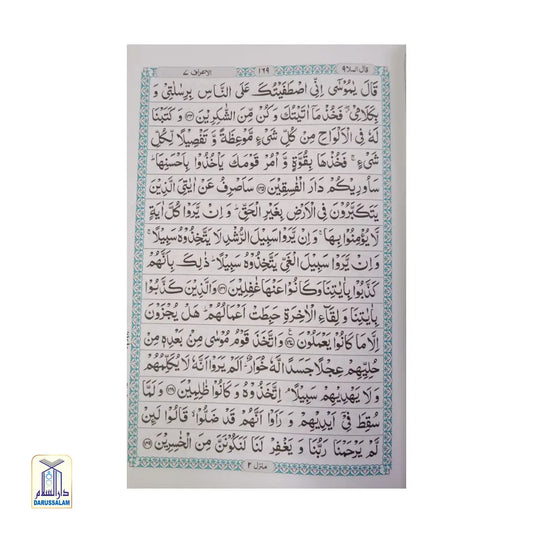 قال الملا ٩
١٦٩
الاعراف ٧
قَالَ يٰمُوْسٰۤى اِنِّى اصْطَفَيْتُكَ عَلَى النَّاسِ بِرِسٰلٰتِىْ وَ
بِكَلَامِىْ ۖ فَخُذْ مَاۤ اٰتَيْتُكَ وَ كُنْ مِّنَ الشّٰكِرِيْنَ ﴿۱۴۴﴾ وَ كَتَبْنَا
لَهٗ فِى الْاَلْوَاحِ مِنْ كُلِّ شَىْءٍ مَّوْعِظَةً وَّ تَفْصِيْلًا لِّكُلِّ
شَىْءٍ ۚ فَخُذْهَا بِقُوَّةٍ وَّ اْمُرْ قَوْمَكَ يَاْخُذُوْا بِاَحْسَنِهَا ؕ
سَاُورِيْكُمْ دَارَ الْفٰسِقِيْنَ ﴿۱۴۵﴾ سَاَصْرِفُ عَنْ اٰيٰتِىَ الَّذِيْنَ
يَتَكَبَّرُوْنَ فِى الْاَرْضِ بِغَيْرِ الْحَقِّ ؕ وَ اِنْ يَّرَوْا كُلَّ اٰيَةٍ
لَّا يُؤْمِنُوْا بِهَا ۚ وَ اِنْ يَّرَوْا سَبِيْلَ الرُّشْدِ لَا يَتَّخِذُوْهُ سَبِيْلًا ۚ
وَ اِنْ يَّرَوْا سَبِيْلَ الْغَىِّ يَتَّخِذُوْهُ سَبِيْلًا ؕ ذٰلِكَ بِاَنَّهُمْ
كَذَّبُوْا بِاٰيٰتِنَا وَ كَانُوْا عَنْهَا غٰفِلِيْنَ ﴿۱۴۶﴾ وَ الَّذِيْنَ كَذَّبُوْا
بِاٰيٰتِنَا وَ لِقَآءِ الْاٰخِرَةِ حَبِطَتْ اَعْمَالُهُمْ ؕ هَلْ يُجْزَوْنَ
اِلَّا مَا كَانُوْا يَعْمَلُوْنَ ﴿۱۴۷﴾ وَ اتَّخَذَ قَوْمُ مُوْسٰى مِنْۢ بَعْدِهٖ مِنْ
حُلِيِّهِمْ عِجْلًا جَسَدًا لَّهٗ خُوَارٌ ؕ اَلَمْ يَرَوْا اَنَّهٗ لَا يُكَلِّمُهُمْ
وَ لَا يَهْدِيْهِمْ سَبِيْلًا ۘ اِتَّخَذُوْهُ وَ كَانُوْا ظٰلِمِيْنَ ﴿۱۴۸﴾ وَ لَمَّا
سُقِطَ فِىْۤ اَيْدِيْهِمْ وَ رَاَوْا اَنَّهُمْ قَدْ ضَلُّوْا ۙ قَالُوْا لَئِنْ
لَّمْ يَرْحَمْنَا رَبُّنَا وَ يَغْفِرْ لَنَا لَنَكُوْنَنَّ مِنَ الْخٰسِرِيْنَ ﴿۱۴۹﴾
منزل ٢
دارالسلام
DARUSSALAM